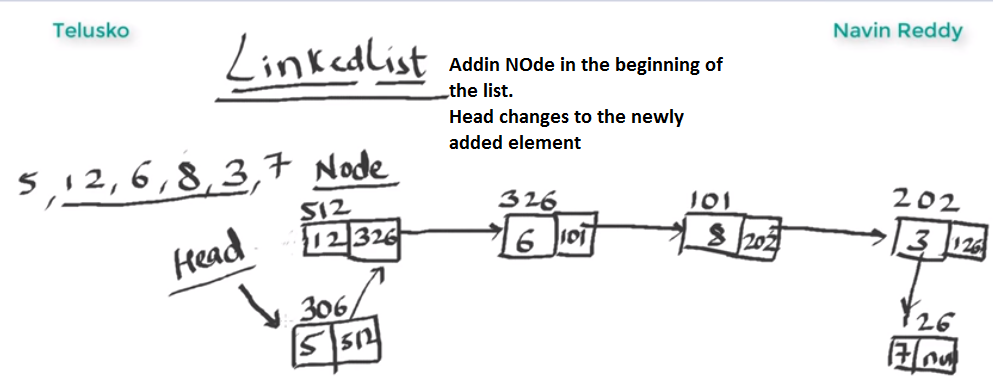 Telusko
Navin Reddy
LinkedList
Addin NOde in the beginning of
the list.
Head changes to the newly
added element
5, 12, 6, 8, 3, 7 Node
512 326 101 202
12 326 6 101 8 202 3 126
Head
306 126
5 512 7 null